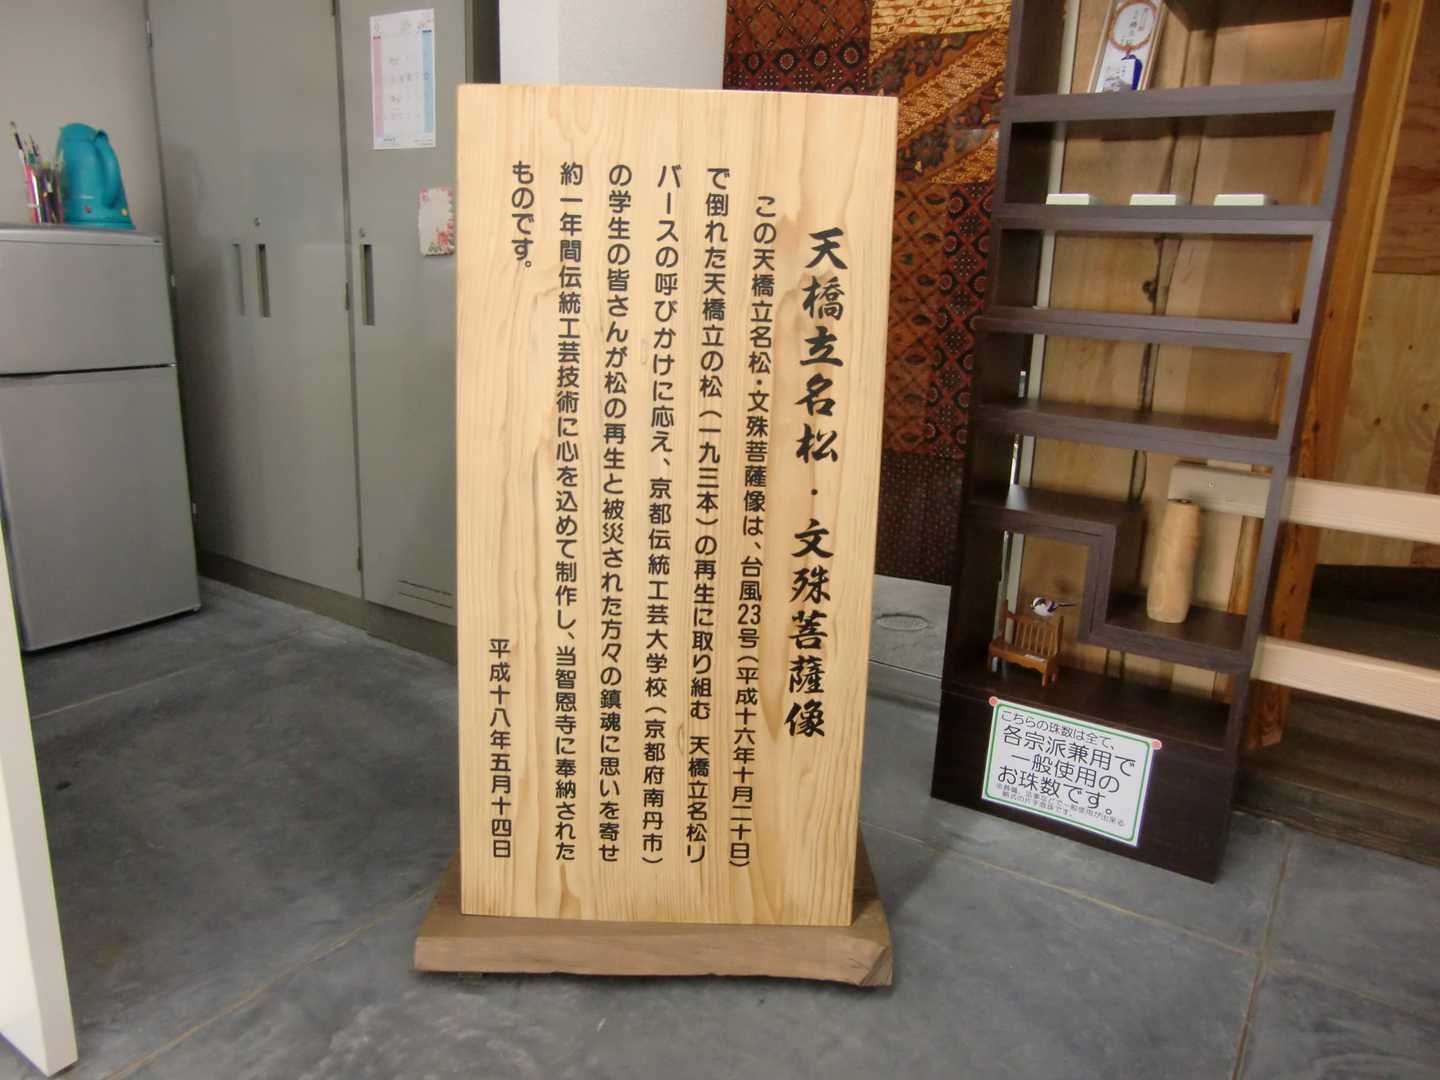 天橋立名松・文殊菩薩像
この天橋立名松・文殊菩薩像は、台風23号(平成十六年十月二十日)
で倒れた天橋立の松(一九三本)の再生に取り組む 天橋立名松リ
バースの呼びかけに応え、京都伝統工芸大学校(京都府南丹市)
の学生の皆さんが松の再生と被災された方々の鎮魂に思いを寄せ
約一年間伝統工芸技術に心を込めて制作し、当智恩寺に奉納された
ものです。
平成十八年五月十四日
こちらの珠数は全て、
各宗派兼用で
一般使用の
お珠数です。